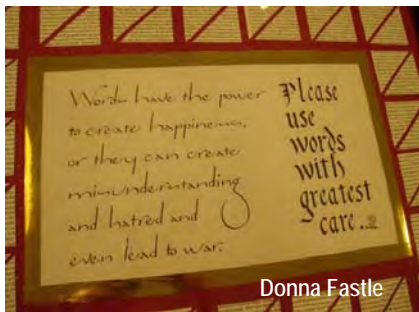 Words have the power
to create happiness,
or they can create
misunderstanding
and hatred and
even lead to war.
Please
use
words
with
greatest
care...
Donna Fastle